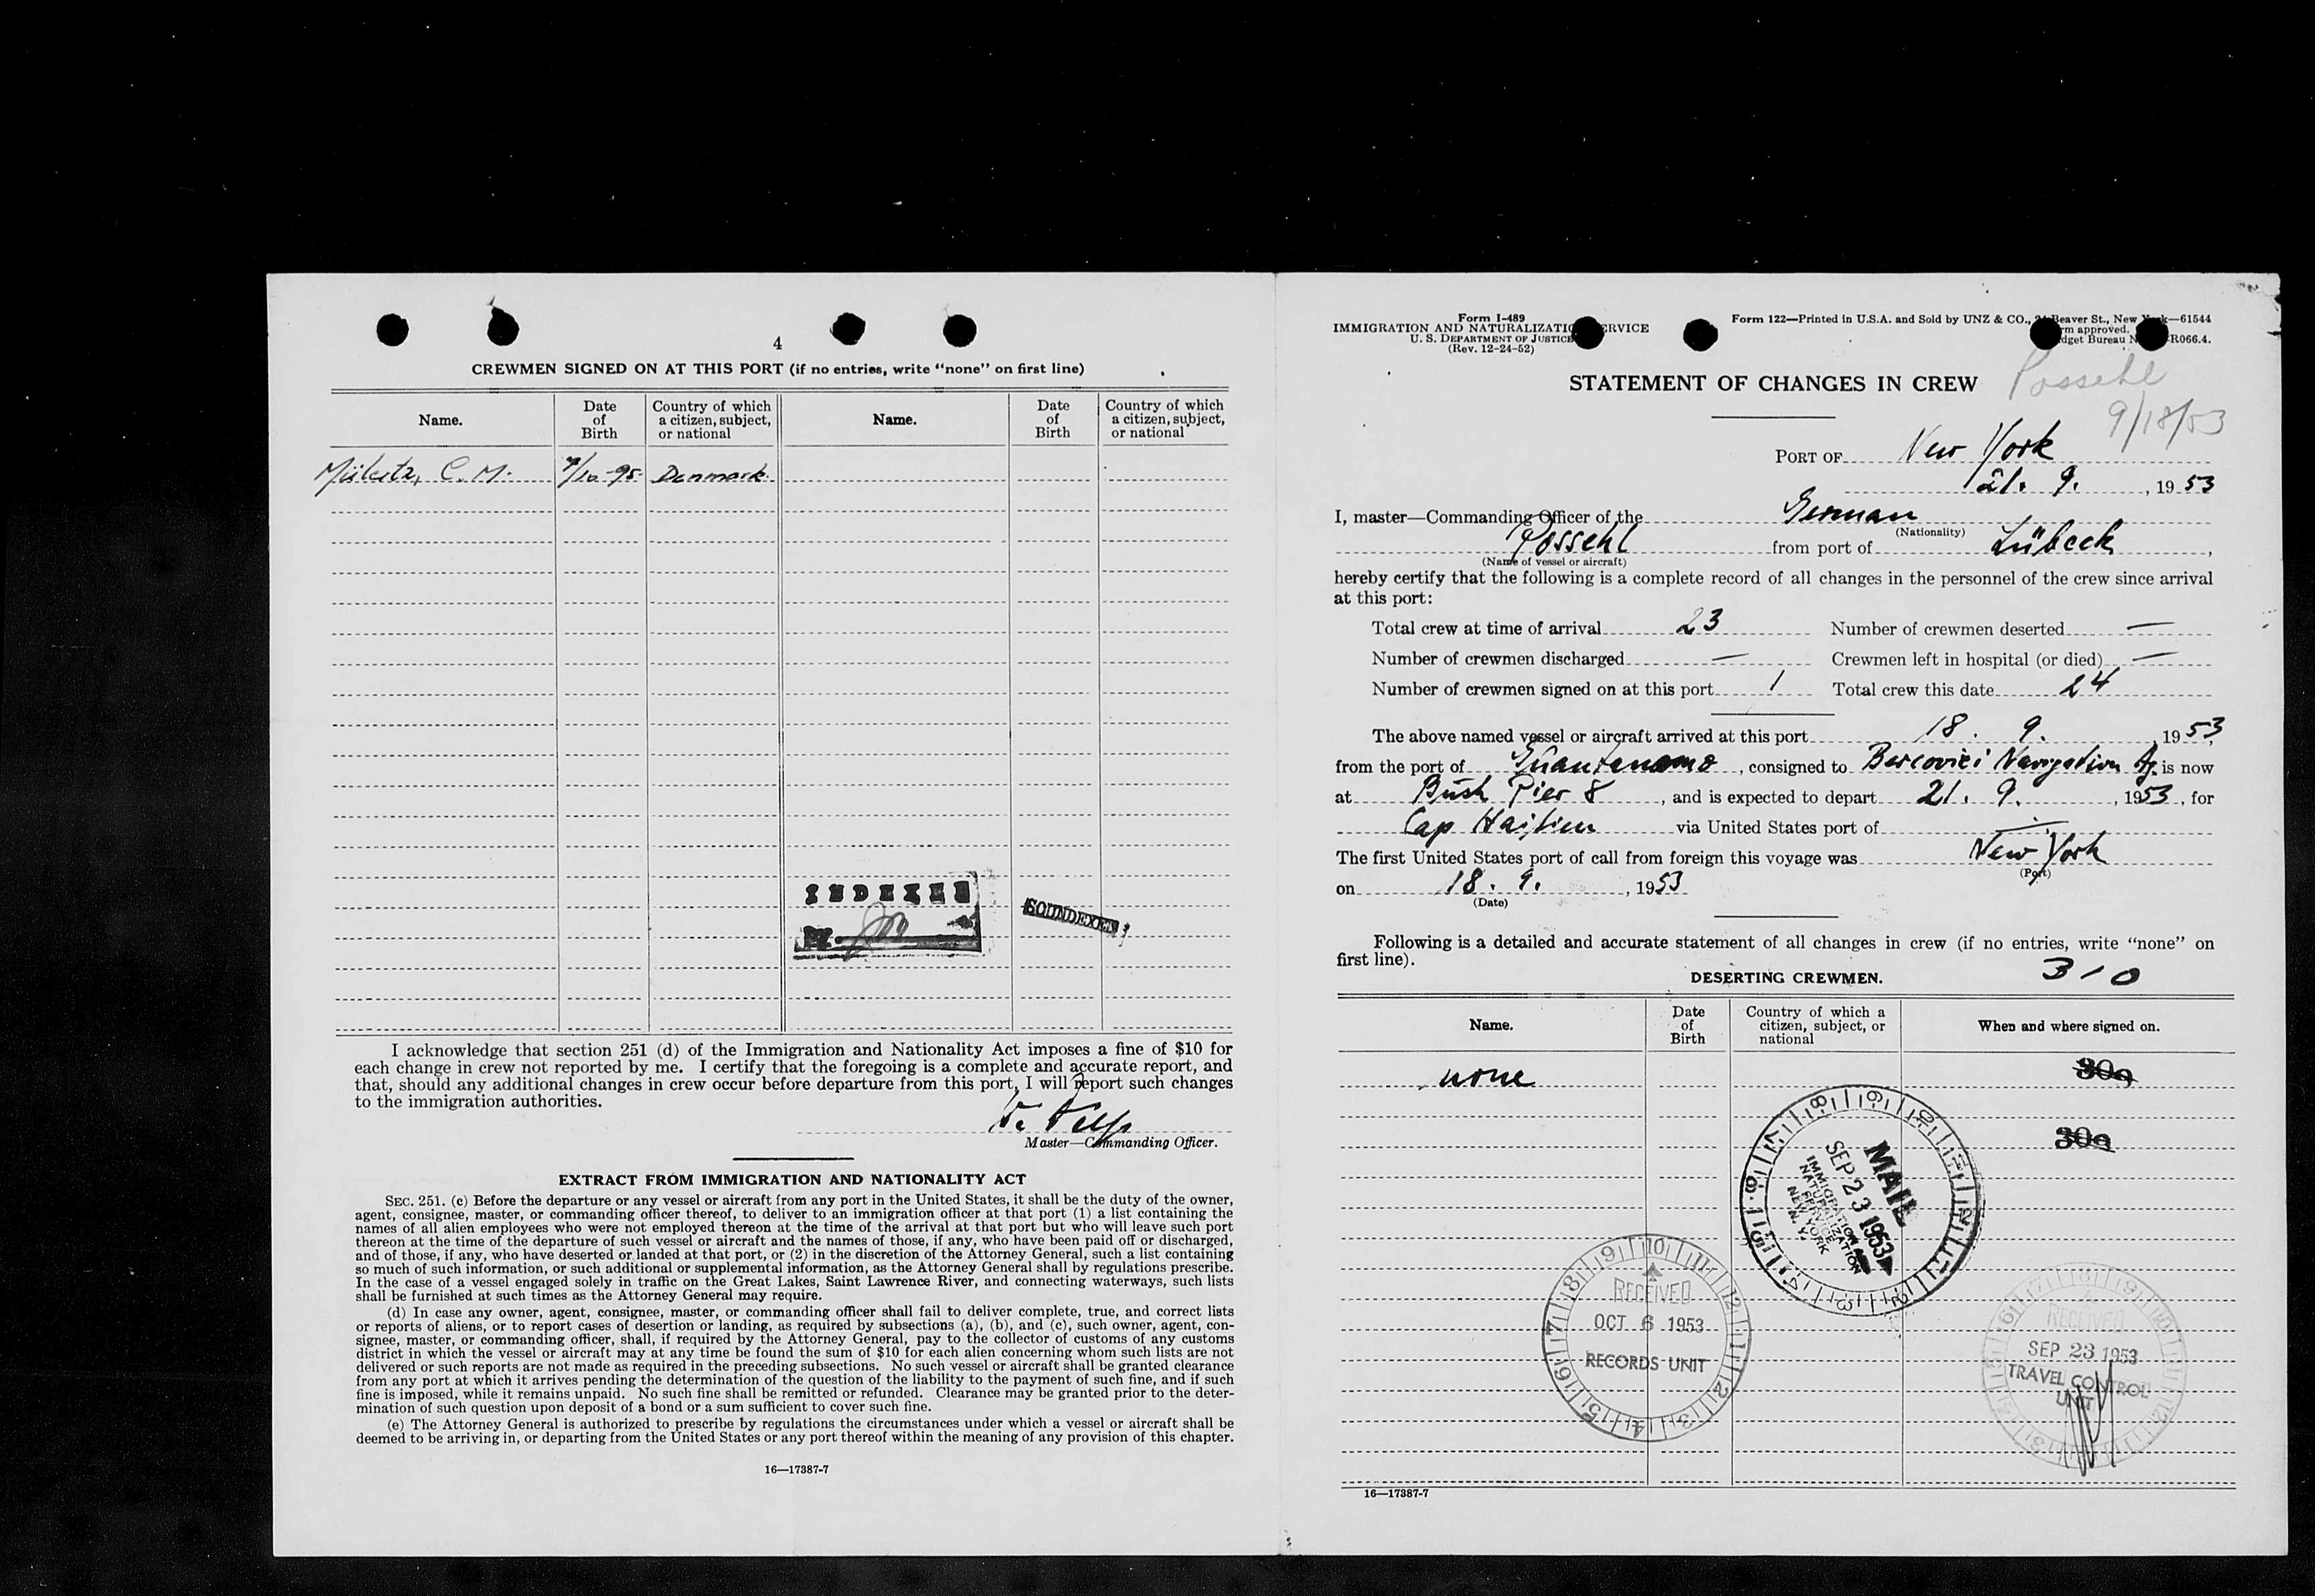 4
CREWMEN SIGNED ON AT THIS PORT (if no entries, write "none" on first line)
Name.
Date of Birth
Country of which a citizen, subject, or national
Name.
Date of Birth
Country of which a citizen, subject, or national
C. M. Denmark
INDEXED
SOUNDEXED
I acknowledge that section 251 (d) of the Immigration and Nationality Act imposes a fine of $10 for
each change in crew not reported by me. I certify that the foregoing is a complete and accurate report, and
that, should any additional changes in crew occur before departure from this port, I will report such changes
to the immigration authorities.
Master—Commanding Officer.
EXTRACT FROM IMMIGRATION AND NATIONALITY ACT
SEC. 251. (c) Before the departure or any vessel or aircraft from any port in the United States, it shall be the duty of the owner,
agent, consignee, master, or commanding officer thereof, to deliver to an immigration officer at that port (1) a list containing the
names of all alien employees who were not employed thereon at the time of the arrival at that port but who will leave such port
thereon at the time of the departure of such vessel or aircraft and the names of those, if any, who have been paid off or discharged,
and of those, if any, who have deserted or landed at that port, or (2) in the discretion of the Attorney General, such a list containing
so much of such information, or such additional or supplemental information, as the Attorney General shall by regulations prescribe.
In the case of a vessel engaged solely in traffic on the Great Lakes, Saint Lawrence River, and connecting waterways, such lists
shall be furnished at such times as the Attorney General may require.
(d) In case any owner, agent, consignee, master, or commanding officer shall fail to deliver complete, true, and correct lists
or reports of aliens, or to report cases of desertion or landing, as required by subsections (a), (b), and (c), such owner, agent, con-
signee, master, or commanding officer, shall, if required by the Attorney General, pay to the collector of customs of any customs
district in which the vessel or aircraft may at any time be found the sum of $10 for each alien concerning whom such lists are not
delivered or such reports are not made as required in the preceding subsections. No such vessel or aircraft shall be granted clearance
from any port at which it arrives pending the determination of the question of the liability to the payment of such fine, and if such
fine is imposed, while it remains unpaid. No such fine shall be remitted or refunded. Clearance may be granted prior to the deter-
mination of such question upon deposit of a bond or a sum sufficient to cover such fine.
(e) The Attorney General is authorized to prescribe by regulations the circumstances under which a vessel or aircraft shall be
deemed to be arriving in, or departing from the United States or any port thereof within the meaning of any provision of this chapter.
16—17387-7
Form I-489
IMMIGRATION AND NATURALIZATION SERVICE
U. S. DEPARTMENT OF JUSTICE
(Rev. 12-24-52)
Form 122—Printed in U.S.A. and Sold by UNZ & CO., Beaver St., New York—61544
approved.
Budget Bureau R066.4.
STATEMENT OF CHANGES IN CREW
Possehl
9/18/53
PORT OF New York
21. 9. , 1953
I, master—Commanding Officer of the German
(Nationality)
Possehl from port of Lübeck ,
(Name of vessel or aircraft)
hereby certify that the following is a complete record of all changes in the personnel of the crew since arrival
at this port:
Total crew at time of arrival 23 Number of crewmen deserted —
Number of crewmen discharged — Crewmen left in hospital (or died) —
Number of crewmen signed on at this port 1 Total crew this date 24
The above named vessel or aircraft arrived at this port 18. 9. , 1953
from the port of Guantanamo , consigned to Bercovici Navigation Ag. is now
at Bush Pier 8 , and is expected to depart 21. 9. , 1953, for
Cap Haitien via United States port of —
The first United States port of call from foreign this voyage was New York
(Port)
on 18. 9. , 1953
(Date)
Following is a detailed and accurate statement of all changes in crew (if no entries, write "none" on
first line).
3-0
DESERTING CREWMEN.
Name.
Date of Birth
Country of which a citizen, subject, or national
When and where signed on.
none
30a
30a
MAIL
SEP 23 1953
IMMIGRATION AND
NATURALIZATION
SERVICE
NEW YORK
N.Y.
RECEIVED
OCT 6 1953
RECORDS UNIT
RECEIVED
SEP 23 1953
TRAVEL CONTROL
UNIT
16—17387-7